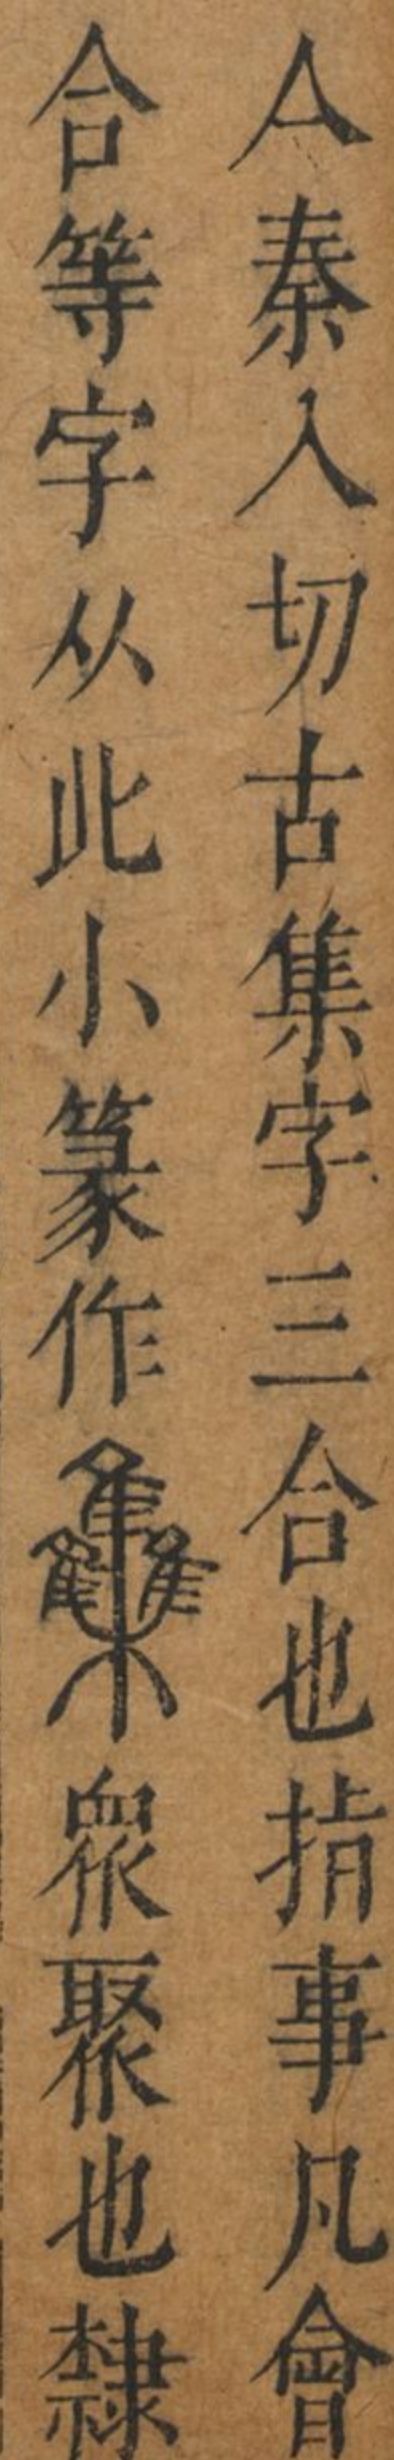 亼秦入切古集字三合也指事凡會
合等字从此小篆作雧眾聚也隸